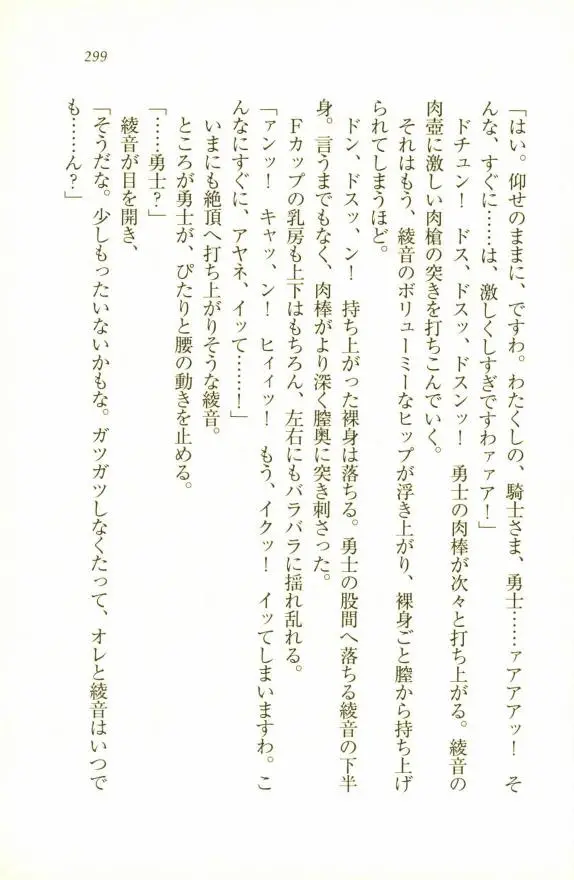 299
「はい。仰せのままに、ですわ。わたくしの、騎士さま、勇士……ァアアアッ！　そ
んな、すぐに……は、激しくしすぎですわァァア！」
ドチュン！　ドス、ドスッ、ドスンッ！　勇士の肉棒が次々と打ち上がる。綾音の
肉壺に激しい肉槍の突きを打ちこんでいく。
それはもう、綾音のボリューミーなヒップが浮き上がり、裸身ごと膣から持ち上げ
られてしまうほど。
ドン、ドスッ、ン！　持ち上がった裸身は落ちる。勇士の股間へ落ちる綾音の下半
身。言うまでもなく、肉棒がより深く膣奥に突き刺さった。
Fカップの乳房も上下はもちろん、左右にもバラバラに揺れ乱れる。
「ァンッ！　キャッ、ン！　ヒィィッ！　もう、イクッ！　イッてしまいますわ。こ
んなにすぐに、アヤネ、イッて……！」
いまにも絶頂へ打ち上がりそうな綾音。
ところが勇士が、ぴたりと腰の動きを止める。
「……勇士？」
綾音が目を開き、
「そうだな。少しもったいないかもな。ガツガツしなくたって、オレと綾音はいつで
も……ん？」